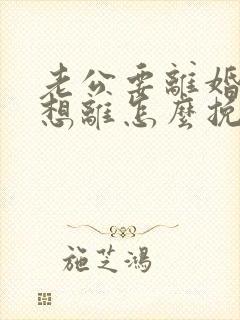 老公要離婚
想離怎麼挽
施芝鴻